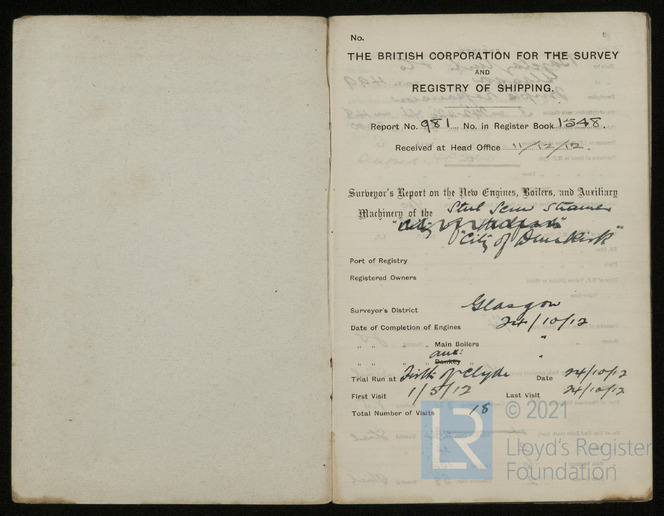 No.
THE BRITISH CORPORATION FOR THE SURVEY
AND
REGISTRY OF SHIPPING.
Report No. 981 No. in Register Book 1548.
Received at Head Office 11/12/12.
Surveyor's Report on the New Engines, Boilers, and Auxiliary
Machinery of the Steel Screw Steamer
"City of Dunkirk"
Port of Registry
Registered Owners
Surveyor's District Glasgow
Date of Completion of Engines 24/10/12
„ „ „ Main Boilers "
„ „ „ Donkey „ "
aux:
Trial Run at Firth of Clyde Date 24/10/12
First Visit 1/5/12 Last Visit 24/10/12
Total Number of Visits 18
LR
© 2021
Lloyd's Register
Foundation